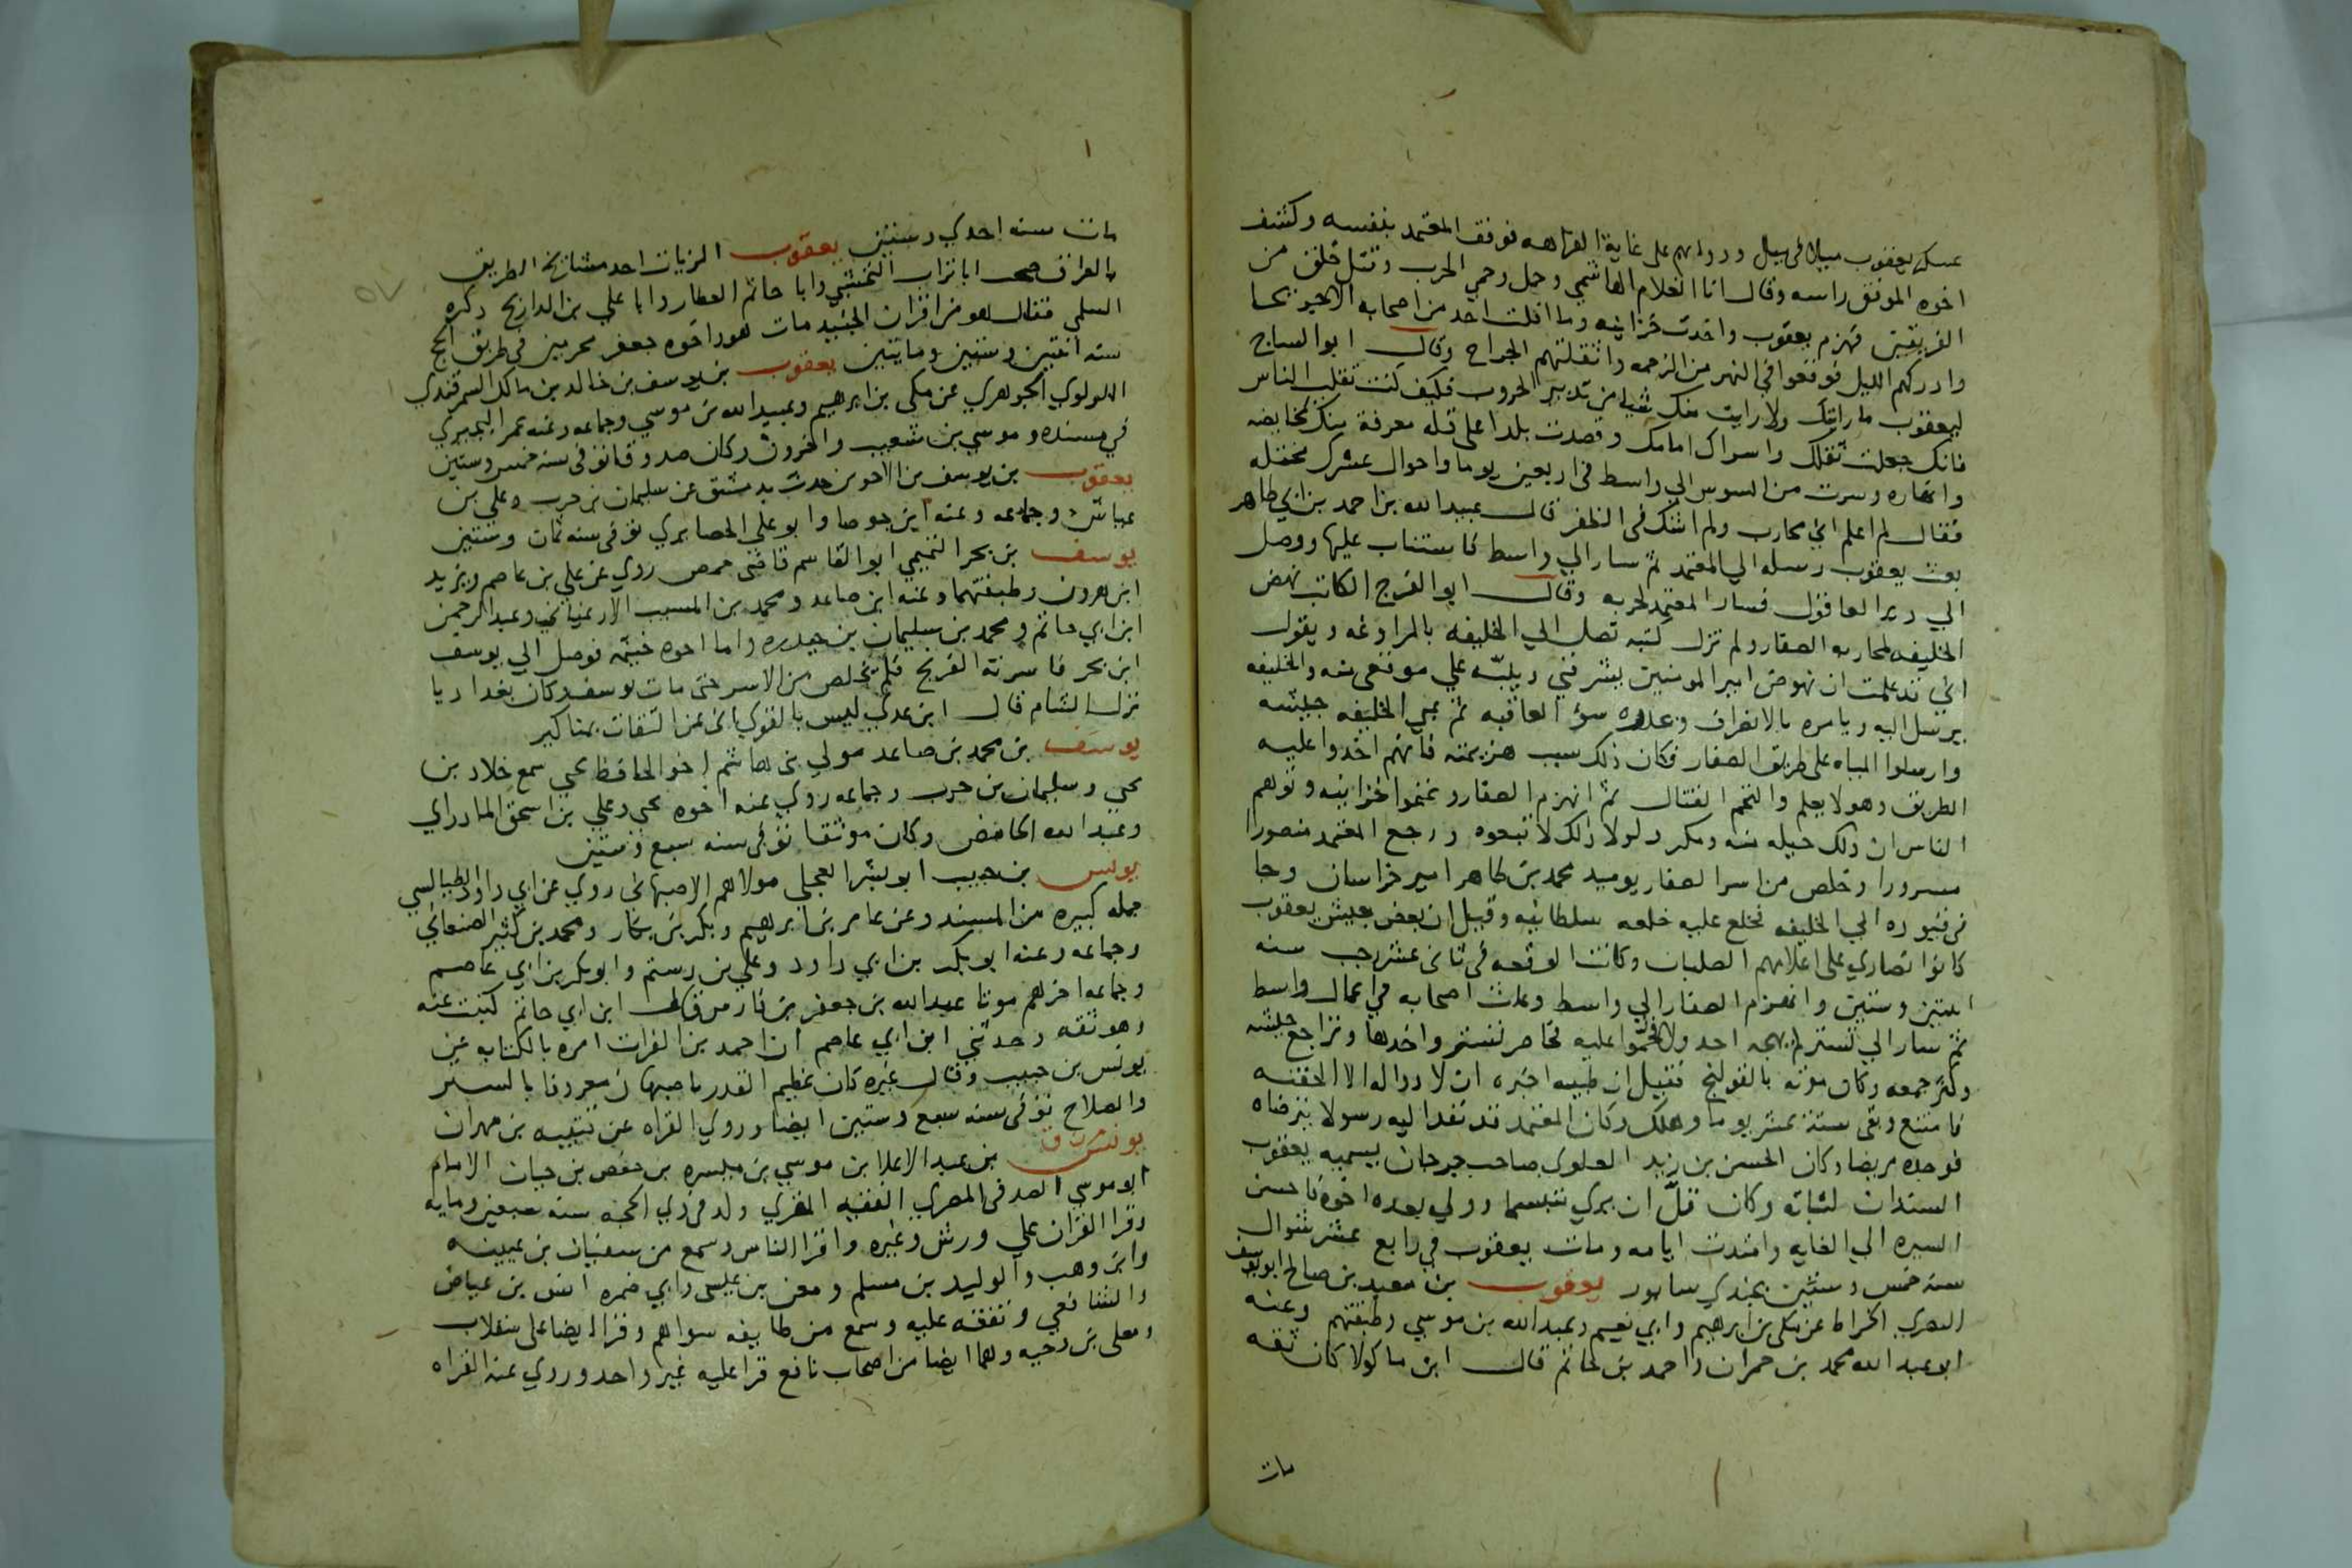 عسكر يعقوب ميلا في ميل ودوابهم على غاية الفراهه فوقف المعتمد بنفسه وكشف
اخوه الموفق راسه وقال انا الغلام الهاشمي وحمل وحمي الحرب وقتل خلق من
الفريقين فهزم يعقوب واخذت خزاينه وما افلت احد من اصحابه الا جريحا
وادركهم الليل فوقعوا في النهر من الزحمه واثقلتهم الجراح وقال ابو الساج
ليعقوب ما رايتك ولا رايت منك شيا من تدبير الحروب فكيف كنت تغلب الناس
فانك جعلت ثقلك واسراك امامك وقصدت بلدا على قله معرفة منك بمخايضه
وانهاره وسرت من السوس الى واسط في اربعين يوما واحوال عسكرك مختله
فقال لم اعلم اني محارب ولم اشك في الظفر قال عبيد الله بن احمد بن ابي طاهر
بعث يعقوب رسله الي المعتمد ثم سار الي واسط فاستناب عليها ووصل
الي دير العاقول فسار المعتمد لحربه وقال ابو الفرج الكاتب نهض
الخليفه لمحاربه الصفار ولم تزل كتبه تصل الي الخليفه بالمراوغه ويقول
اني قد علمت ان نهوض امير المومنين يشرفني وينبه علي موقعي منه والخليفه
يرسل اليه ويامره بالانصراف وحذره سؤ العاقبه ثم عبي الخليفه جيشه
وارسلوا المياه على طريق الصفار فكان ذلك سبب هزيمته فانهم اخذوا عليه
الطريق وهو لا يعلم والتحم القتال ثم انهزم الصفار وغنموا خزاينه وتوهم
الناس ان ذلك حيله منه ومكر ولولا ذلك لاتبعوه ورجع المعتمد منصورا
مسرورا وخلص من اسر الصفار يوميد محمد بن طاهر امير خراسان وجا
في قيوده الي الخليفه فخلع عليه خلعه سلطانيه وقيل ان بعض جيش يعقوب
كانوا نصاري على اعلامهم الصلبان وكانت الوقعه في ثاني عشر رجب سنه
اثنتين وستين وانهزم الصفار الي واسط وعاث اصحابه في اعمال واسط
ثم سار الي تستر لم يهجه احد ولا اقحموا عليه فحاصر تستر واخذها وتراجع جيشه
وكثر جمعه وكان موته بالقولنج فقيل ان طبيبه اخبره ان لا دوا له الا الحقنه
فامتنع وبقى ستة عشر يوما وهلك وكان المعتمد قد نفد اليه رسولا يترضاه
فوجده مريضا وكان الحسن بن زيد العلوي صاحب جرجان يسميه يعقوب
السندان لثباته وكان قلّ ان يري متبسما وولي بعده اخوه فاحسن
السيره الي الغايه وامتدت ايامه ومات يعقوب في رابع عشر شوال
سنه خمس وستين بجندي سابور يعقوب بن معبد بن صالح ابو يوسف
البصري الخراط عن مكي بن ابرهيم وابي نعيم وعبيد الله بن موسي وطبقتهم وعنه
ابو عبد الله محمد بن حمران واحمد بن حاتم قال ابن ماكولا كان ثقه
مات
مات سنه احدي وستين يعقوب الزيات احد مشايخ الطريق
بالعراق صحب ابا تراب النخشبي وابا حاتم العطار وابا علي بن الدازيح ذكره
السلمي فقال هو من اقران الجنيد مات هو واخوه جعفر محرمين في طريق الحج
سنه اثنتين وستين ومايتين يعقوب بن يوسف بن خالد بن مالك السمرقندي
اللولوي الجوهري عن مكي بن ابرهيم وعبيد الله بن موسي وجماعه وعنه عمر البجيري
في مسنده وموسي بن شعيب واخرون وكان صدوقا توفى سنه خمس وستين
يعقوب بن يوسف بن الاحوص حدث بدمشق عن سليمان بن حرب وعلي بن
عياش وجماعه وعنه ابن جوصا وابو علي الحصايري توفى سنه ثمان وستين
يوسف بن بحر التميمي ابو القاسم قاضي حمص روي عن علي بن عاصم ويزيد
ابن هرون وطبقتهما وعنه ابن صاعد ومحمد بن المسيب الارغياني وعبد الرحمن
ابن ابي حاتم ومحمد بن سليمان بن حيدره واما اخوه خيثمه فوصل الي يوسف
ابن بحر فاسرته الفرنج فلم يخلص من الاسر حتى مات يوسف وكان بغداديا
نزل الشام قال ابن عدي ليس بالقوي اتى عن الثقات بمناكير
يوسف بن محمد بن صاعد مولي بني هاشم اخو الحافظ يحيي سمع خلاد بن
يحيي وسليمان بن حرب وجماعه روي عنه اخوه يحيي وعلي بن اسحق المادراي
وعبد الله الحامض وكان موثقا توفي سنه سبع وستين
يونس بن حبيب ابو بشر العجلي مولاهم الاصبهاني روي عن ابي داود الطيالسي
جمله كبيره من المسند وعن عامر بن ابرهيم وبكر بن بكار ومحمد بن كثير الصنعاني
وجماعه وعنه ابو بكر بن ابي داود وعلي بن رستم وابو بكر بن ابي عاصم
وجماعه اخرهم موتا عبد الله بن جعفر بن فارس قال ابن ابي حاتم كتبت عنه
وهو ثقه وحدثني ابن ابي عاصم ان احمد بن الفرات امره بالكتابه عن
يونس بن حبيب وقال غيره كان عظيم القدر باصبهان معروفا بالستر
والصلاح توفى سنه سبع وستين ايضا وروي القراه عن قتيبه بن مهران
يونس ق بن عبد الاعلا بن موسي بن ميسره بن حفص بن حيان الامام
ابو موسي الصدفي المصري الفقيه المقري ولد في ذي الحجه سنه سبعين ومايه
وقرا القران علي ورش وغيره واقرا الناس وسمع من سفيان بن عيينه
وابن وهب والوليد بن مسلم ومعن بن عيسى وابي ضمره انس بن عياض
والشافعي وتفقه عليه وسمع من طايفه سواهم وقرا ايضا على سقلاب
ومعلى بن دحيه وهما ايضا من اصحاب نافع قرا عليه غير واحد وروي عنه القراه